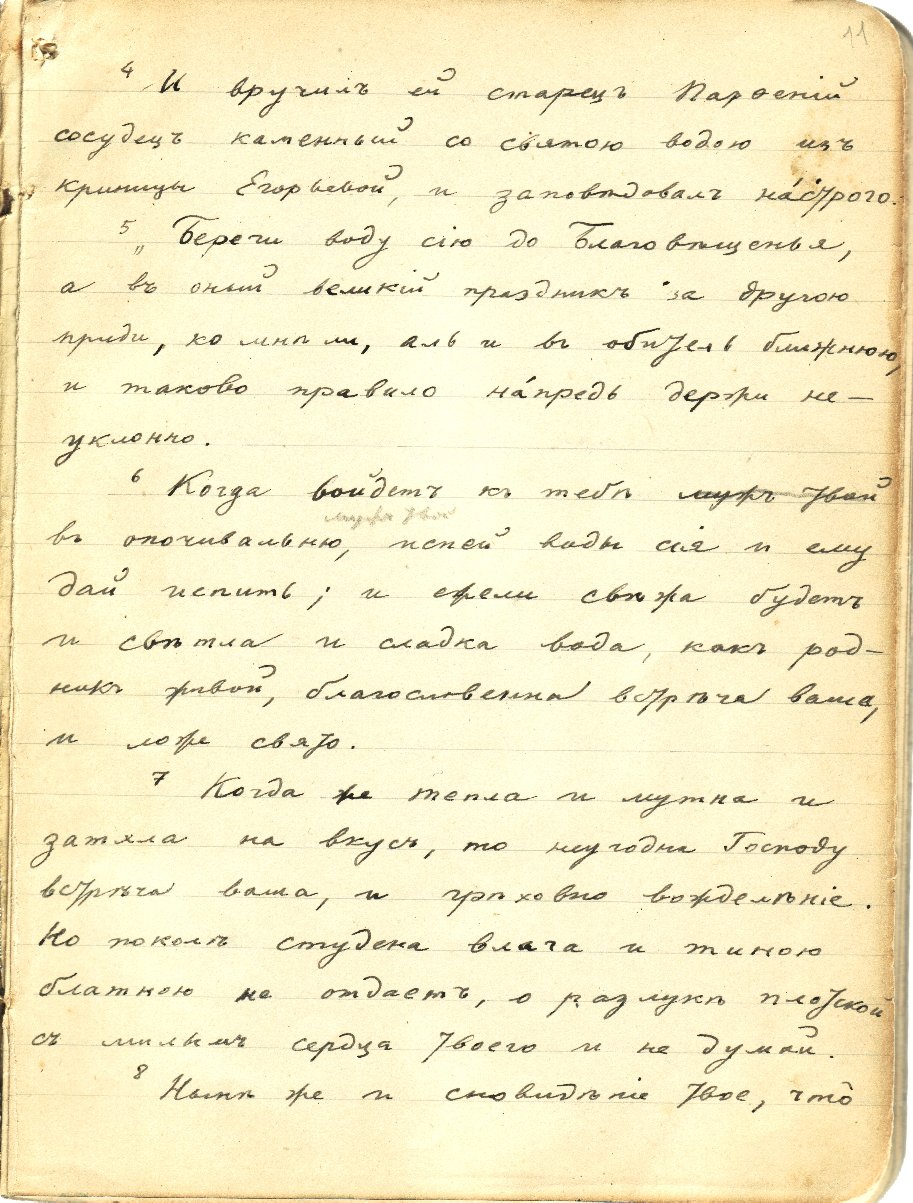 11
4 И вручилъ ей старецъ Парѳенiй
сосудецъ каменный со святою водою изъ
криницы Егорьевой, и заповѣдовалъ на́строго:
5 „Береги воду сiю до Благовѣщенья,
а въ оный великiй праздникъ за другою
приди, ко мнѣ ли, аль и въ обитель ближнюю,
и таково правило на́предь держи не—
уклонно.
6 Когда войдетъ къ тебѣ мужъ твой
мужъ твой
въ опочивальню, испей воды сiя и ему
дай испить; и ежели свѣжа будетъ
и свѣтла и сладка вода, какъ род—
никъ живой, благословенна встрѣча ваша,
и ложе свято.
7 Когда же тепла и мутна и
затхла на вкусъ, то неугодна Господу
встрѣча ваша, и грѣховно вожделѣнiе.
Но поколѣ студена влага и тиною
блатною не отдаетъ, о разлукѣ плотской
съ милымъ сердца твоего и не думай.
8 Нынѣ же и сновидѣнiе твое, что́